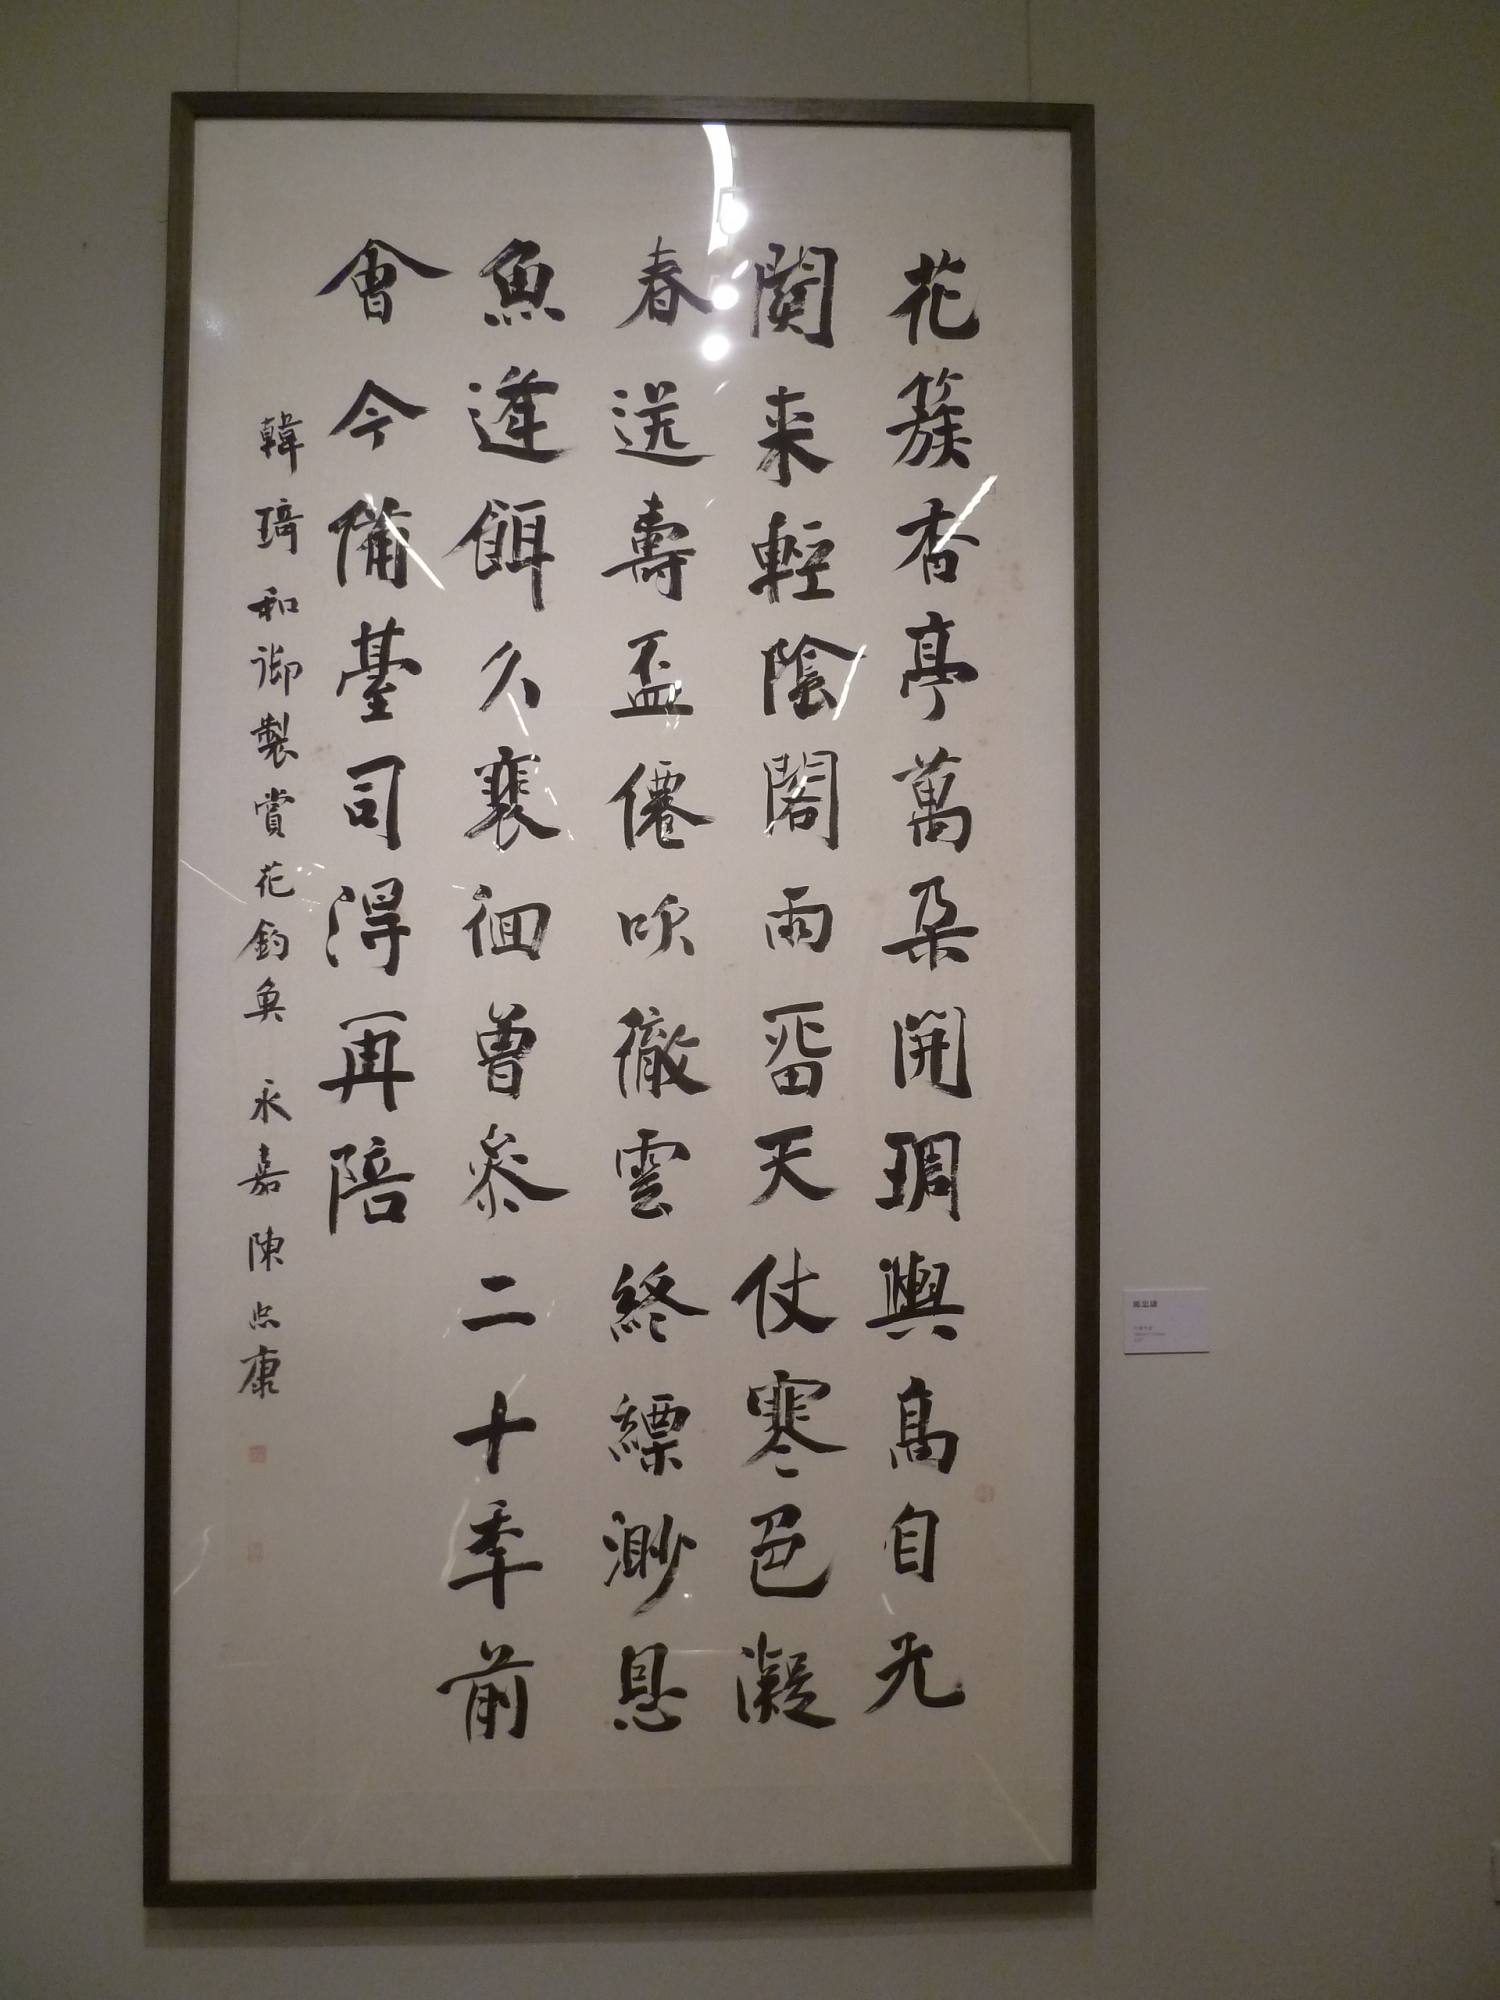 花簇香亭萬朵開珮輿高自九
關来輕陰閣雨畱天仗寒色凝
春送壽盃僊吹徹雲終縹渺恩
魚逢餌久襄徊曾叅二十季前
會今備臺司淂再陪
韓琦和御製賞花釣魚 永嘉陳忠康
陳忠康